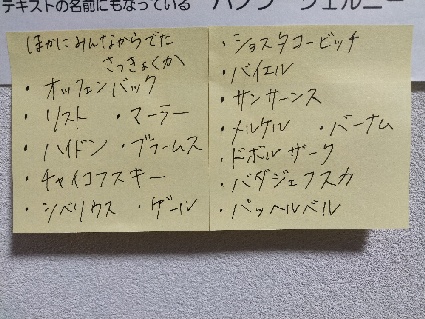 テキストの名前にもなっている バーナム ツェルニー
ほかにみんなからでた
さっきょくか
・オッフェンバック
・リスト ・マーラー
・ハイドン ・ブラームス
・チャイコフスキー
・シベリウス ・ゲール
・ショスタコービッチ
・バイエル
・サンサーンス
・メルケル ・バーナム
・ドボルザーク
・バダジェフスカ
・パッヘルベル